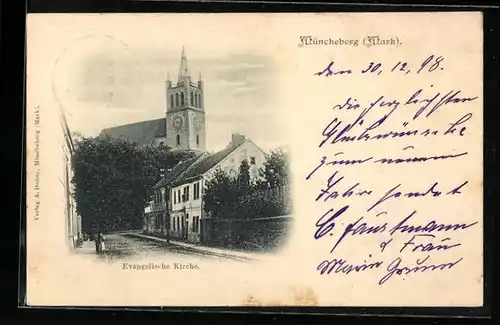 Müncheberg (Mark).
den 30, 12, 98.
die herzlichsten
Glückwünsche
zum neuen
Jahre sendet
C. Faustmann
u Frau
Grunn
Verlag A. Duboy, Müncheberg (Mark).
Evangelische Kirche.